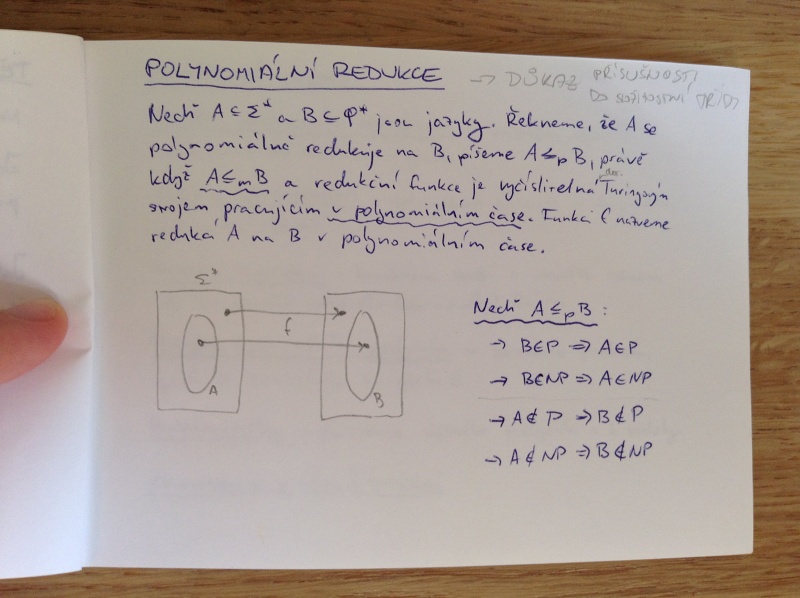 POLYNOMIÁLNÍ REDUKCE → DŮKAZ PŘÍSUŠNOSTI
DO SLOŽITOSTNÍ TŘÍDY
Nechť A ⊆ Σ* a B ⊆ Φ* jsou jazyky. Řekneme, že A se
polynomiálně redukuje na B, píšeme A ≤p B, právě
když A ≤m B a redukční funkce je vyčíslitelná det. Turingovým
strojem pracujícím v polynomiálním čase. Funkci f nazveme
redukcí A na B v polynomiálním čase.
Σ*
f
A
B
Nechť A ≤p B :
→ B∈P ⇒ A∈P
→ B∈NP ⇒ A∈NP
→ A∉P ⇒ B∉P
→ A∉NP ⇒ B∉NP